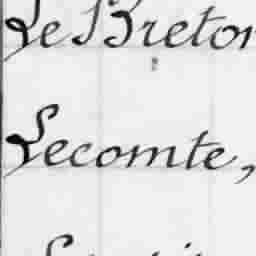 Le Breton
Lecomte,